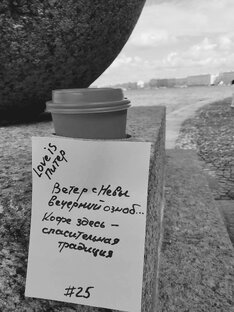 Love is
Питер
Ветер с Невы
Вечерний озноб...
Кофе здесь –
спасительная
традиция
#25